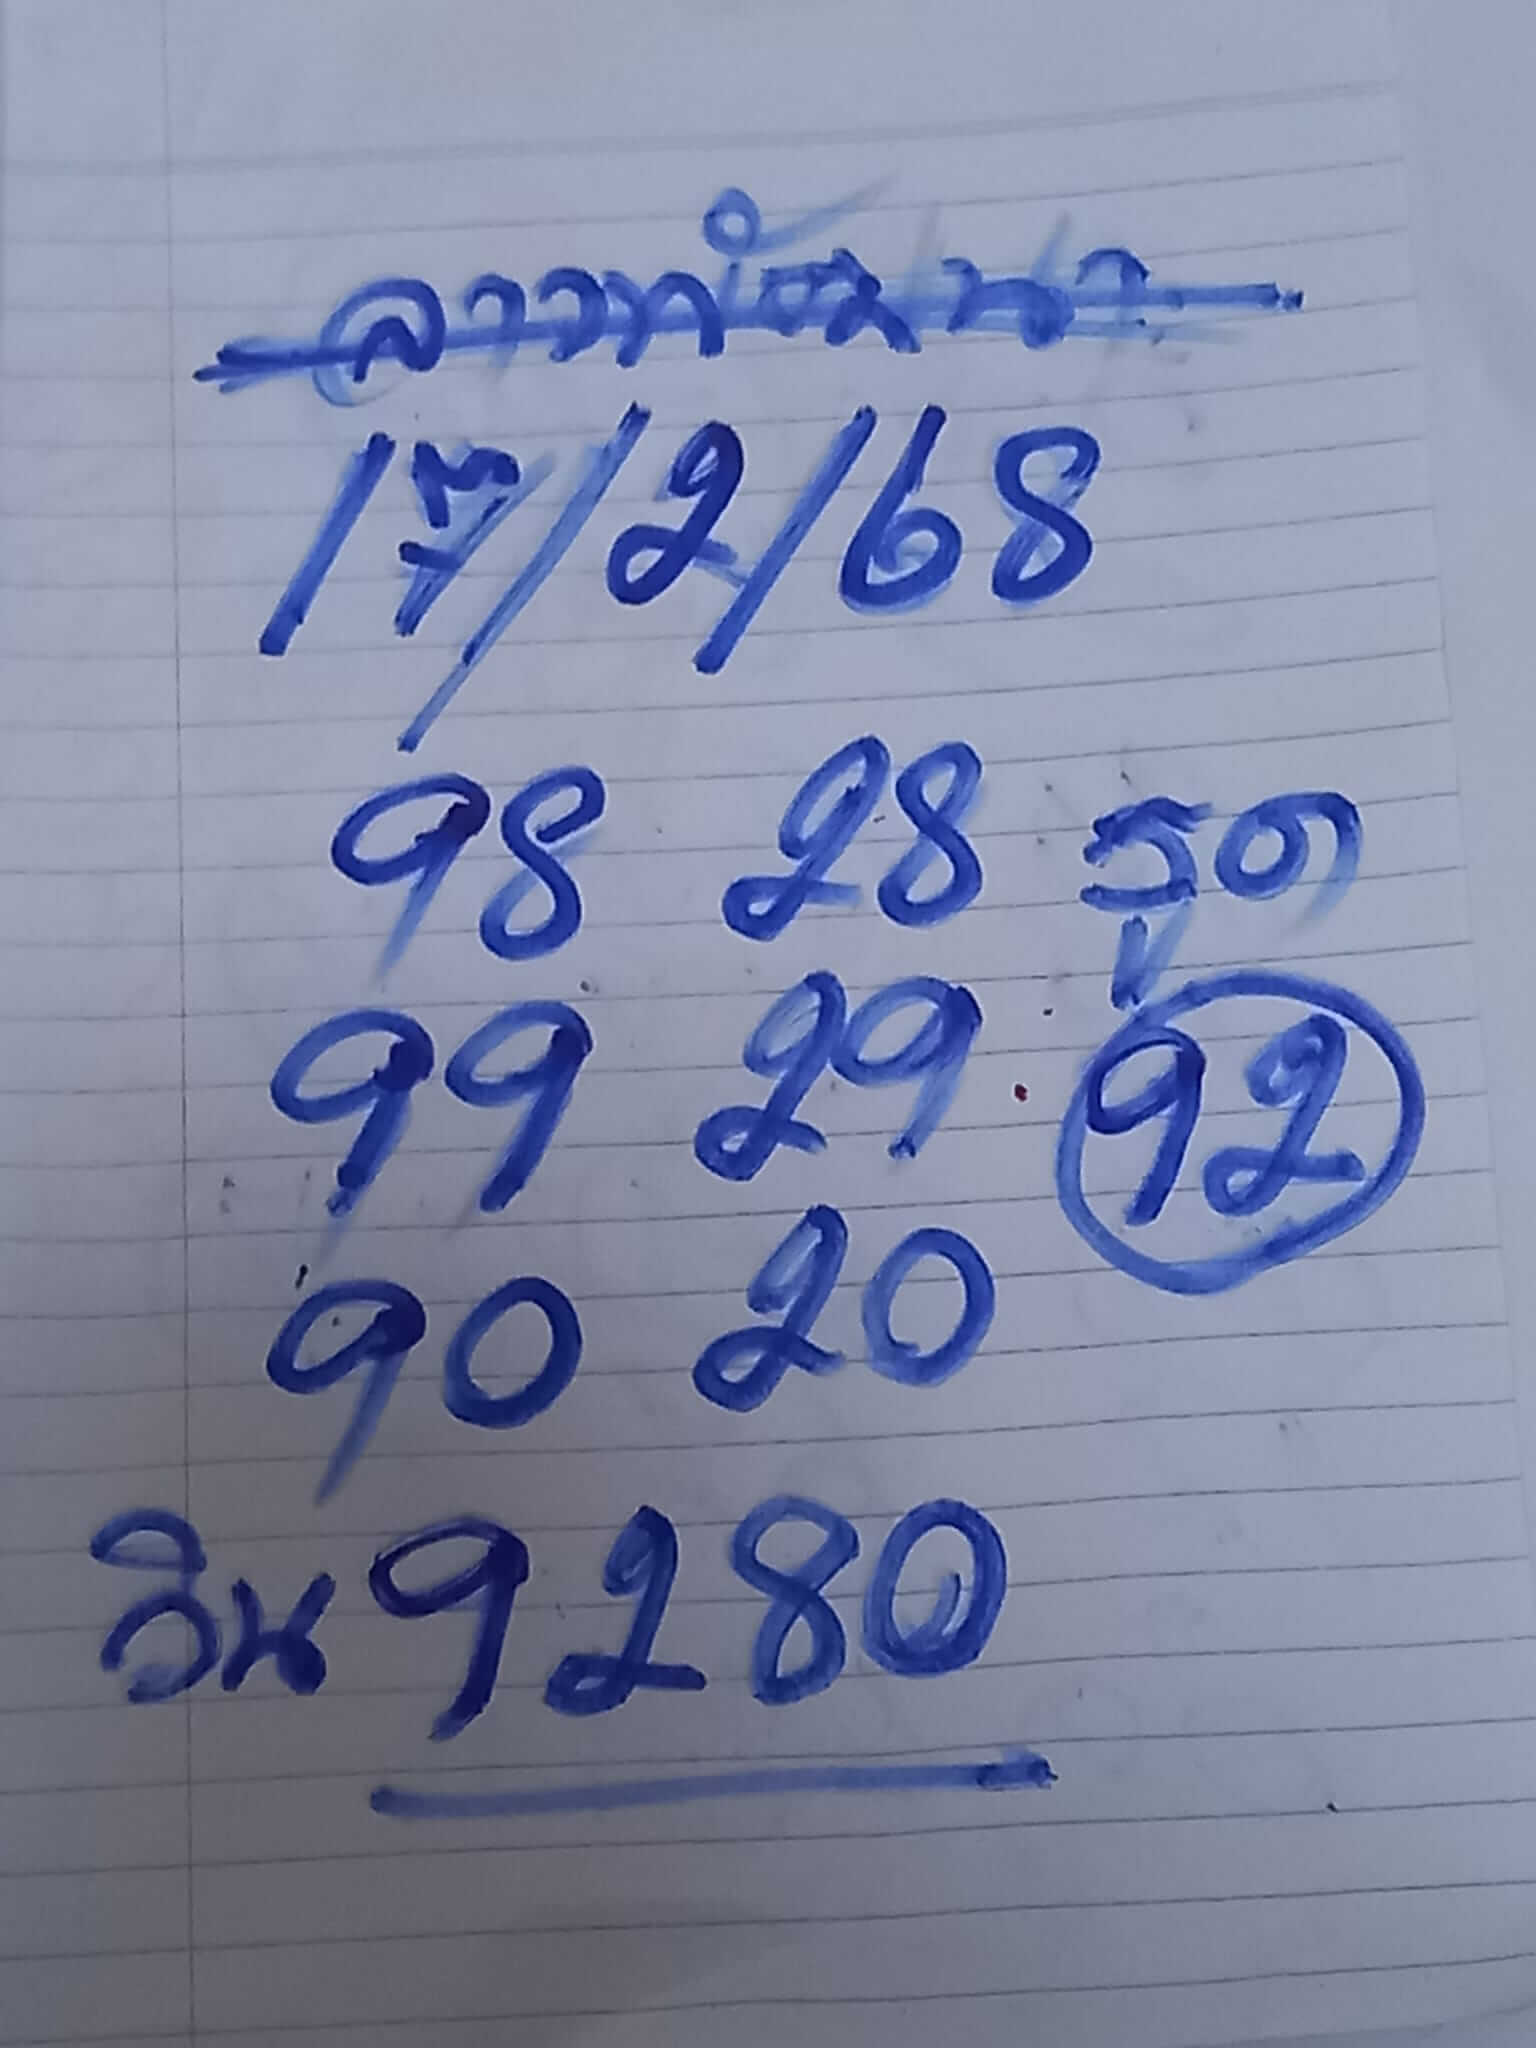 ลาวพัฒนา
17/2/68
98 28 รูด
99 29 92
90 20
วิน 9280